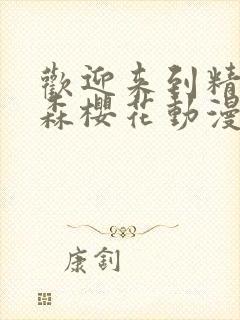 歡迎来到精
森櫻花動漫
康釗